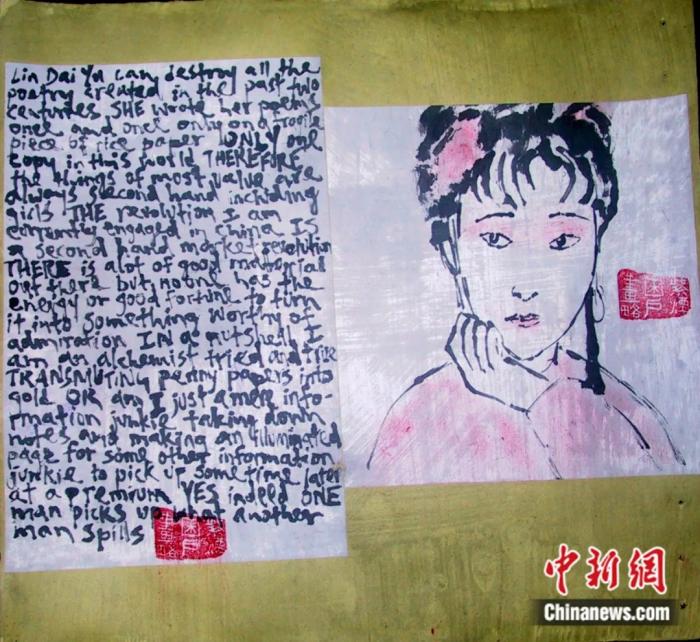 Lin Dai Yu can destroy all the
poetry created in the past two
centuries SHE wrote her poems
one and one only on a
piece of rice paper ONLY one
copy in this world THEREFORE
the things of most value are
always second hand including
girls THE revolution I am
currently engaged in china IS
a second hand market revolution
THERE is alot of good material
out there but no one has the
energy or good fortune to turn
it into something worthy of
admiration IN a nutshell I
am an alchemist tried and true
TRANSMUTING penny papers into
gold OR am I just a mere info-
rmation junkie taking down
notes and making an illuminated
page for some other information
junkie to pick up sometime later
at a premium YES indeed ONE
man picks up what another
man spills
中新网
Chinanews.com